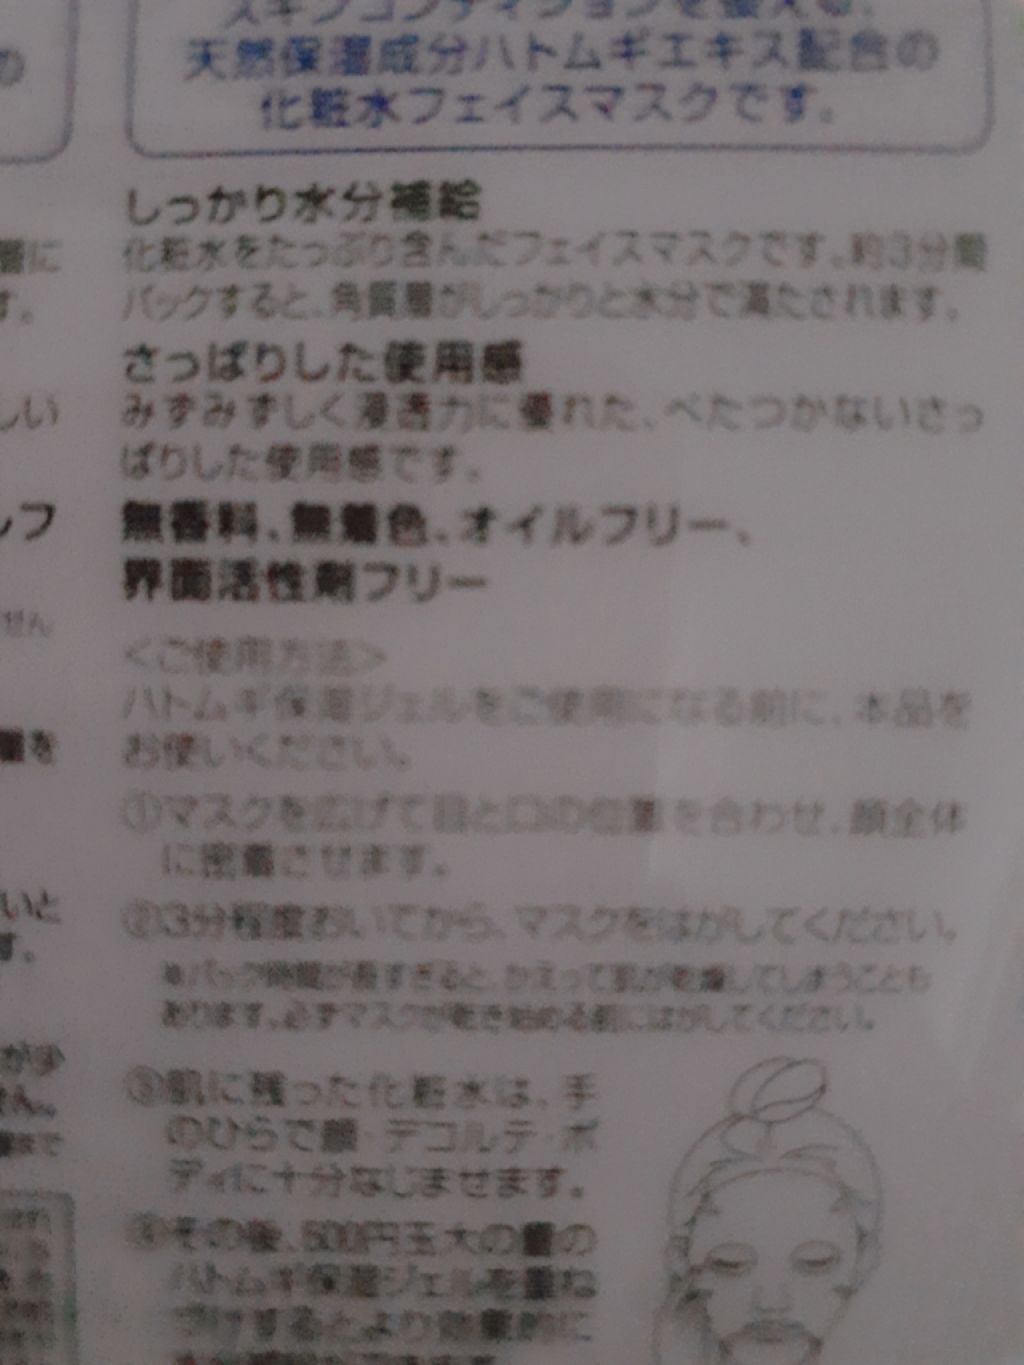 スキンコンディションを整える、
天然保湿成分ハトムギエキス配合の
化粧水フェイスマスクです。
しっかり水分補給
化粧水をたっぷり含んだフェイスマスクです。約3分間
パックすると、角質層がしっかりと水分で満たされます。
さっぱりした使用感
みずみずしく浸透力に優れた、べたつかないさっ
ぱりした使用感です。
無香料、無着色、オイルフリー、
界面活性剤フリー
<ご使用方法>
ハトムギ保湿ジェルをご使用になる前に、本品を
お使いください。
①マスクを広げて目と口の位置を合わせ、顔全体
に密着させます。
②3分程度おいてから、マスクをはがしてください。
※パック時間が長すぎると、かえって肌が乾燥してしまうことも
あります。必ずマスクが乾き始める前にはがしてください。
③肌に残った化粧水は、手
のひらで顔・デコルテ・ボ
ディに十分なじませます。
④その後、500円玉大の量の
ハトムギ保湿ジェルを重ね
づけするとより効果的に